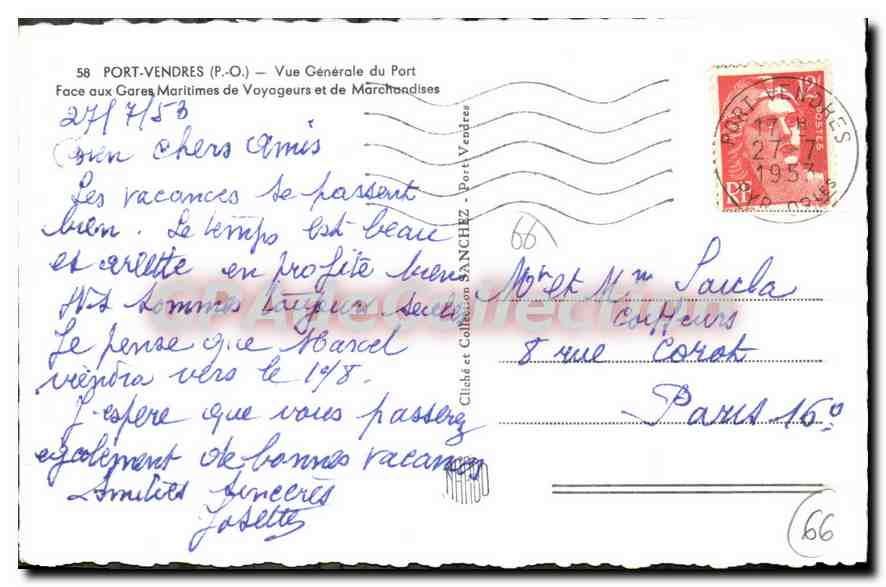 58 PORT-VENDRES (P.-O.) — Vue Générale du Port
Face aux Gares Maritimes de Voyageurs et de Marchandises
27/7/53
Bien chers amis
Les vacances se passent
bien. Le temps est beau
et arlette en profite bien
Ns sommes toujours seules
Je pense que Marcel
viendra vers le 10/8.
J'espère que vous passerez
également de bonnes vacances
Amitiés sincères
Josette
Cliché et Collection SANCHEZ - Port-Vendres
12F
POSTES
RF
PORT-VENDRES
17 H
27-7
1953
PYR. ORles
66
Mr et Mme
Coiffeurs
8 rue Corot
Paris 16e
CPArteCollection
66